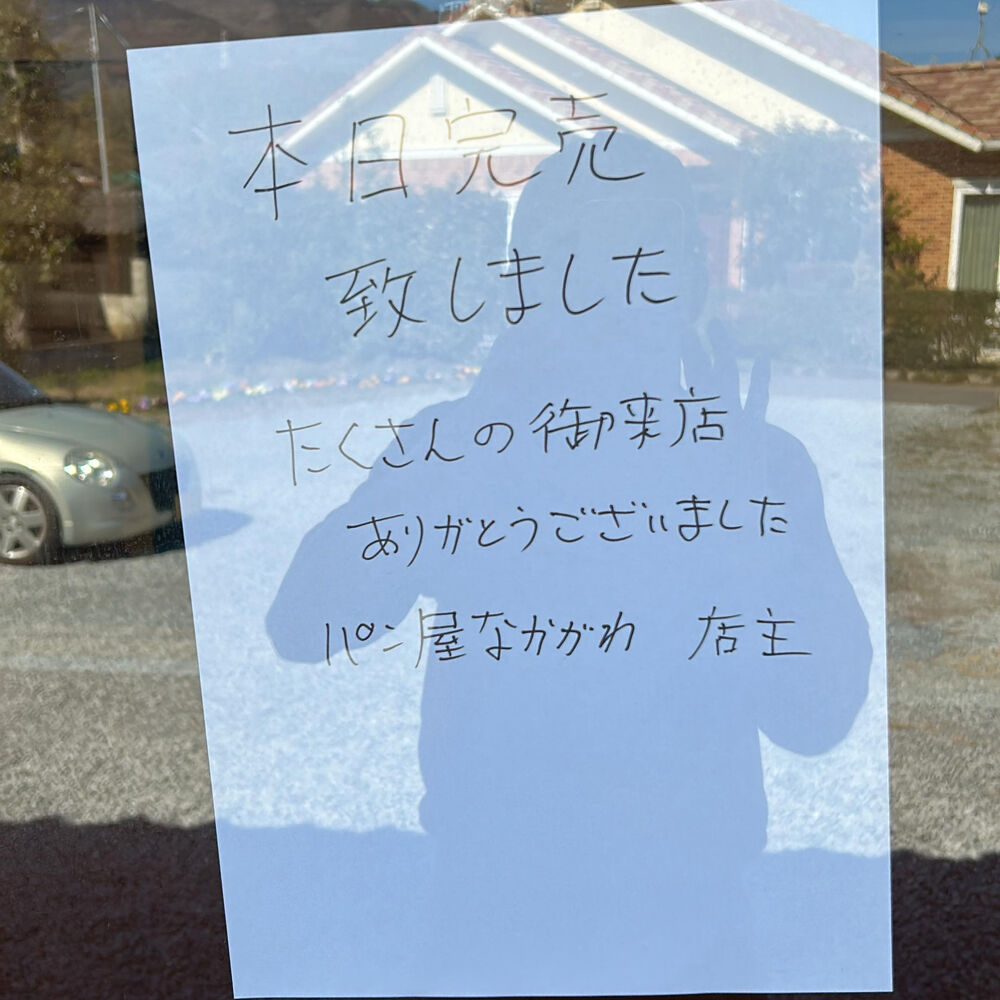 本日完売
致しました
たくさんの御来店
ありがとうございました
パン屋なかがわ 店主